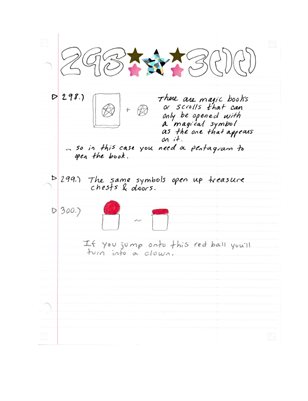 298 300
298.) There are magic books
or scrolls that can
only be opened with
a magical symbol
as the one that appears
on it.
so in this case you need a pentagram to
open the book.
299.) The same symbols open up treasure
chests & doors.
300.)
If you jump onto this red ball you'll
turn into a clown.